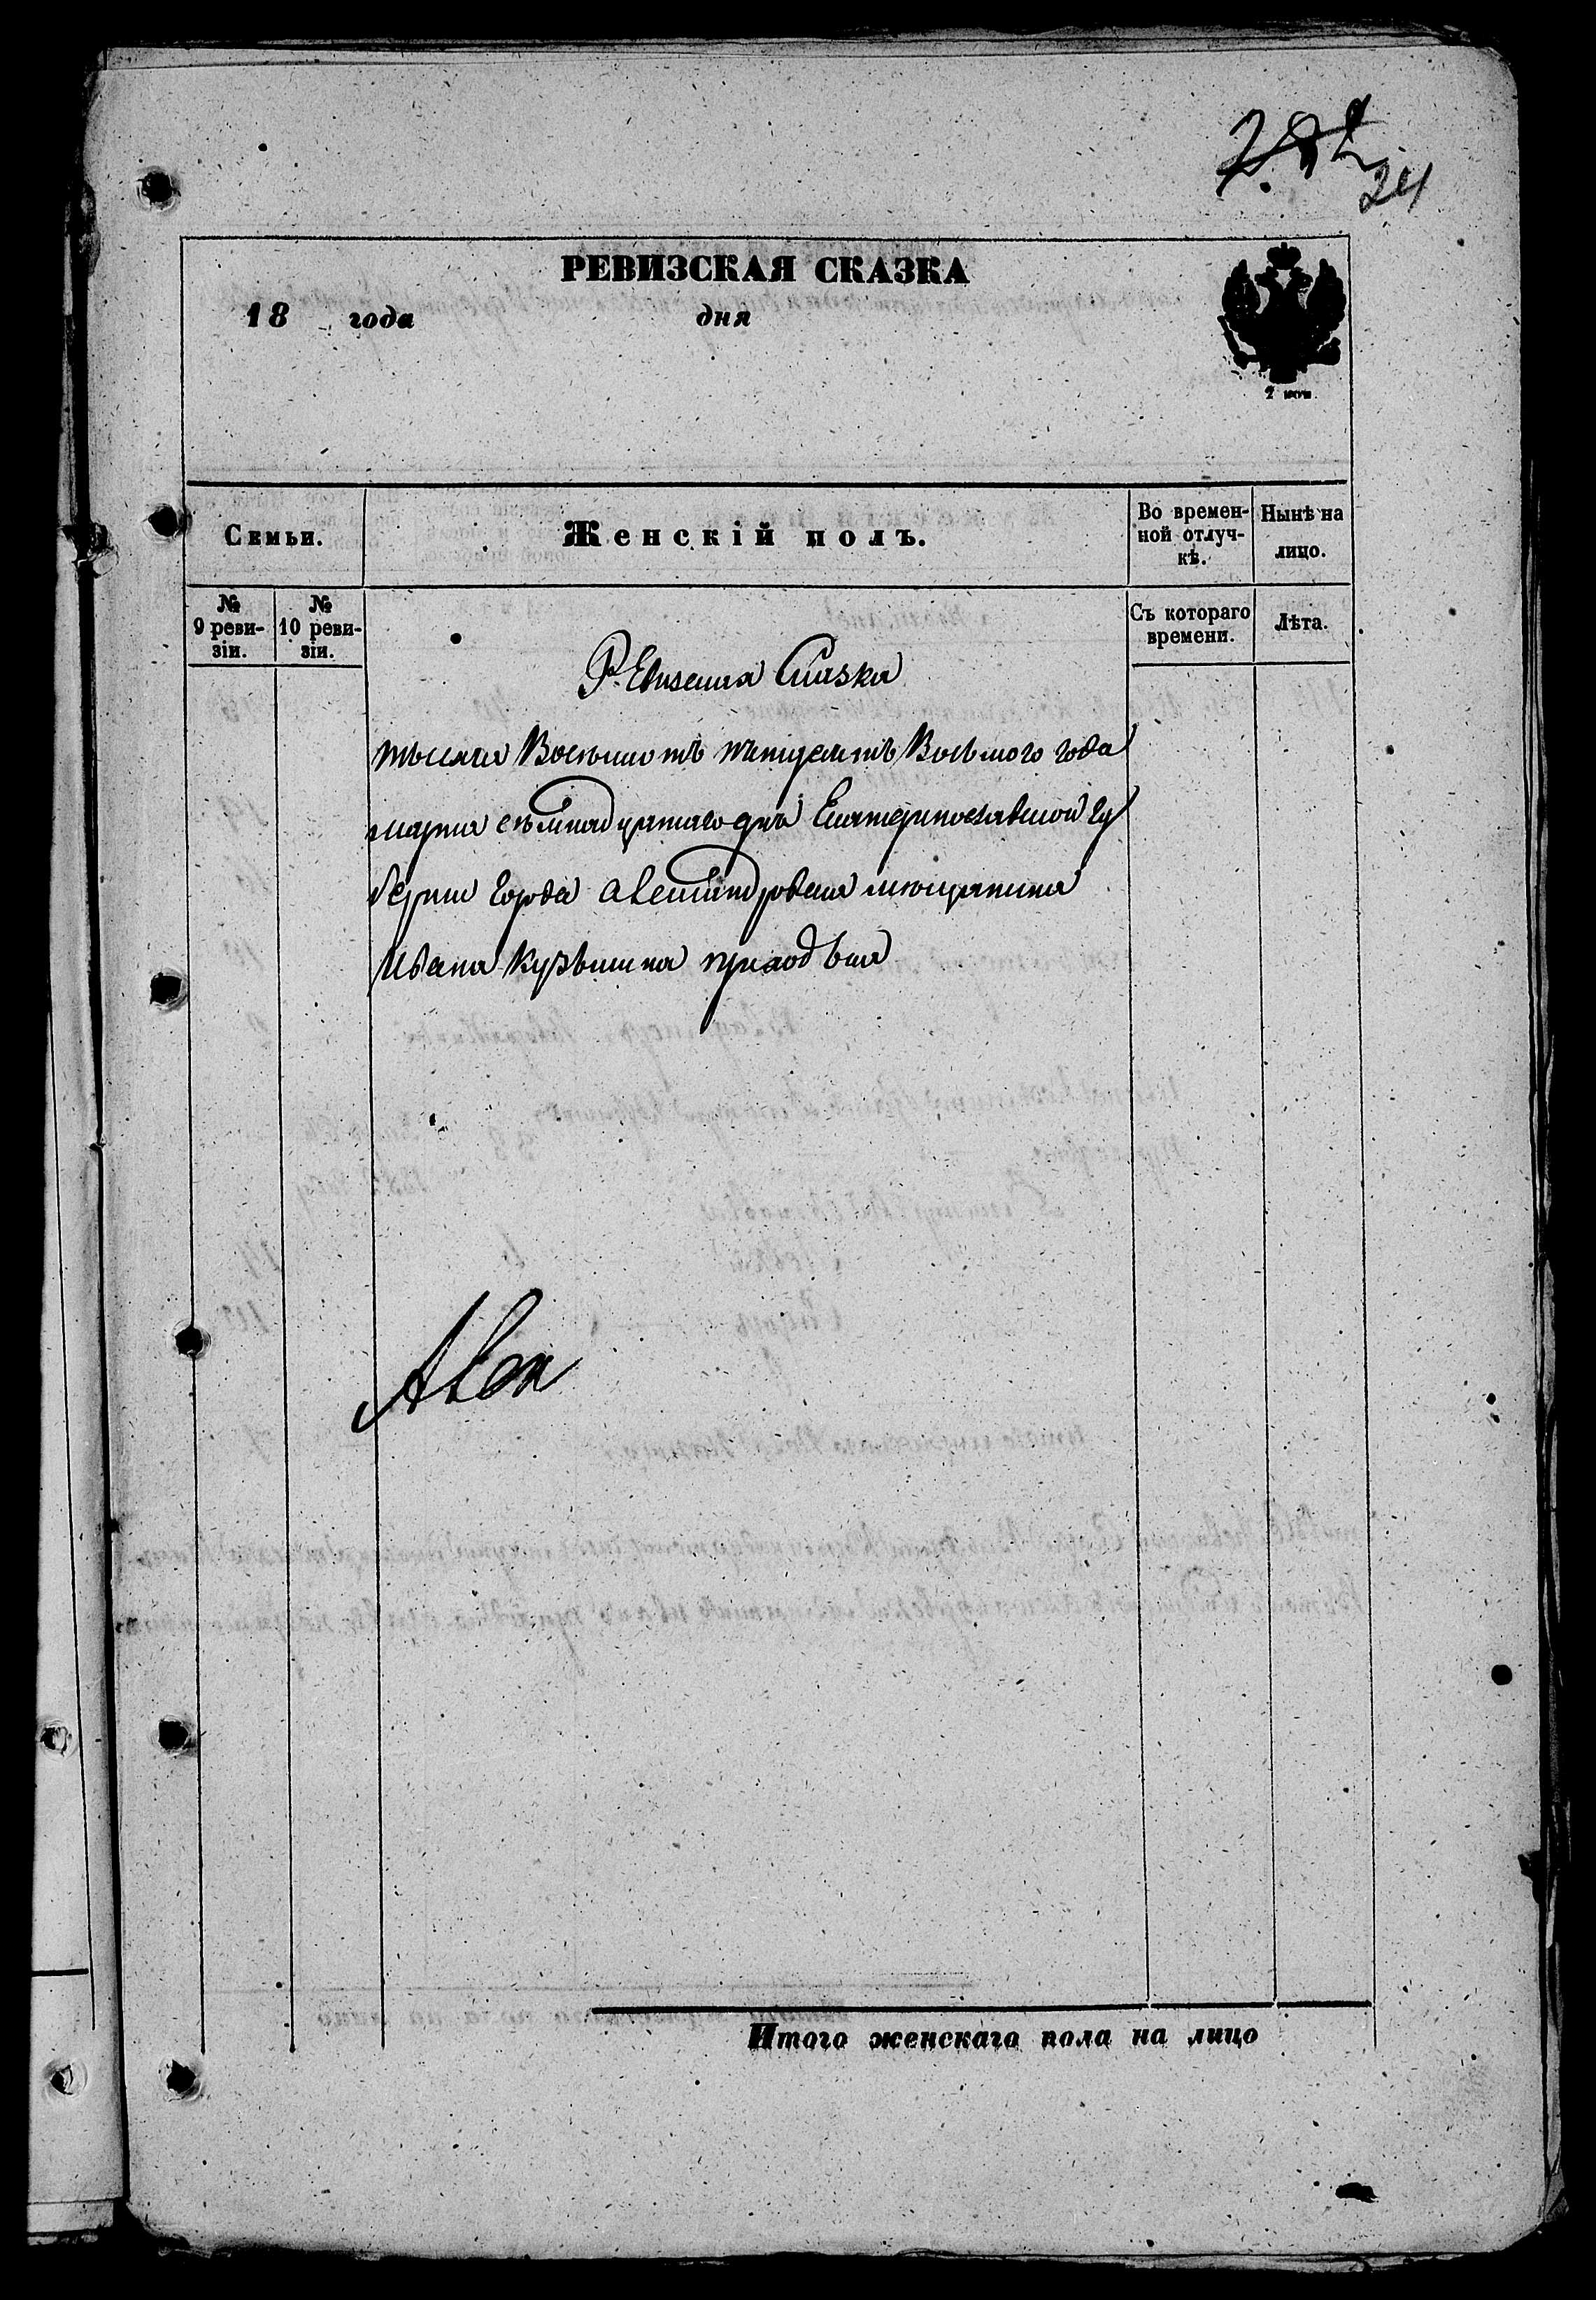 24
РЕВИЗСКАЯ СКАЗКА
18 года дня
2 коп.
Семьи.
Женскій полъ.
Во времен-
ной отлуч-
кѣ.
Нынѣ на
лицо.
№
9 реви-
зіи.
№
10 реви-
зіи.
Съ котораго
времени.
Лѣта.
Ревизская Сказка
тысяча Восемьсотъ пятдесятъ Восьмого года
марта семнадцатаго дня Екатеринославской гу
берніи города Александровска мещанина
Ивана Кузьмина
Алек
Итого женскаго пола на лицо